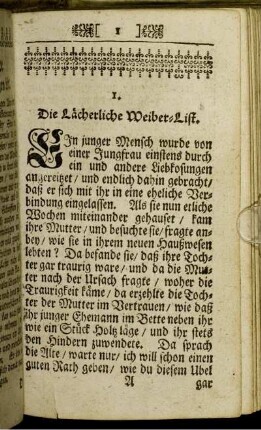 [ 1 ]
1.
Die Lächerliche Weiber-List.
EIn junger Mensch wurde von
einer Jungfrau einstens durch
ein und andere Liebkosungen
angereitzet / und endlich dahin gebracht /
daß er sich mit ihr in eine eheliche Ver-
bindung eingelassen. Als sie nun etliche
Wochen miteinander gehauset / kam
ihre Mutter / und besuchte sie / fragte an-
bey / wie sie in ihrem neuen Haußwesen
lebten? Da befande sie / daß ihre Toch-
ter gar traurig ware / und da die Mut-
ter nach der Ursach fragte / woher die
Traurigkeit käme / da erzehlte die Toch-
ter der Mutter im Vertrauen / wie daß
ihr junger Ehemann im Bette neben ihr
wie ein Stück Holtz läge / und ihr stets
den Hindern zuwendete. Da sprach
die Alte / warte nur / ich will schon einen
guten Rath geben / wie du diesem Ubel
A gar